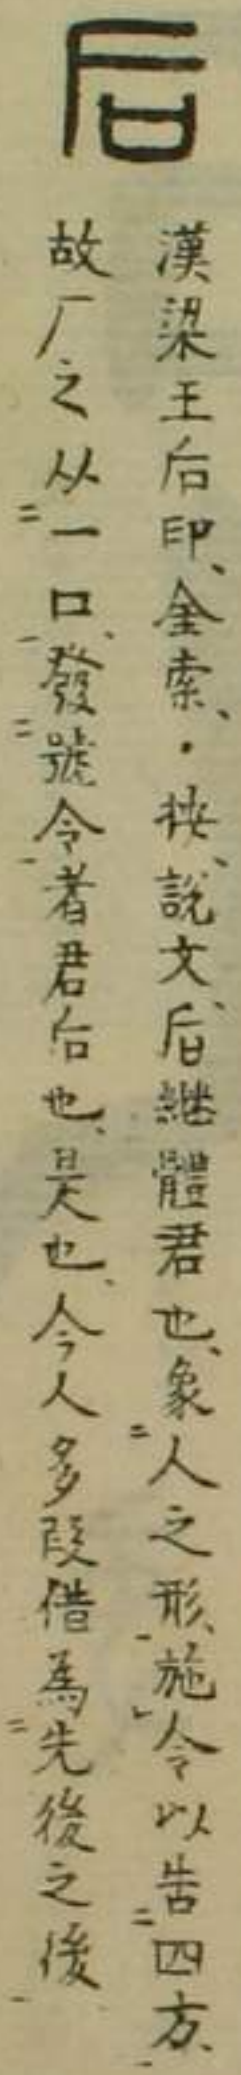 后
漢梁王后印、金索、・按、說文、后繼體君也、象人之形、施令以告四方、
故厂之从一口、發號令者君后也、是也、今人多叚借爲先後之後